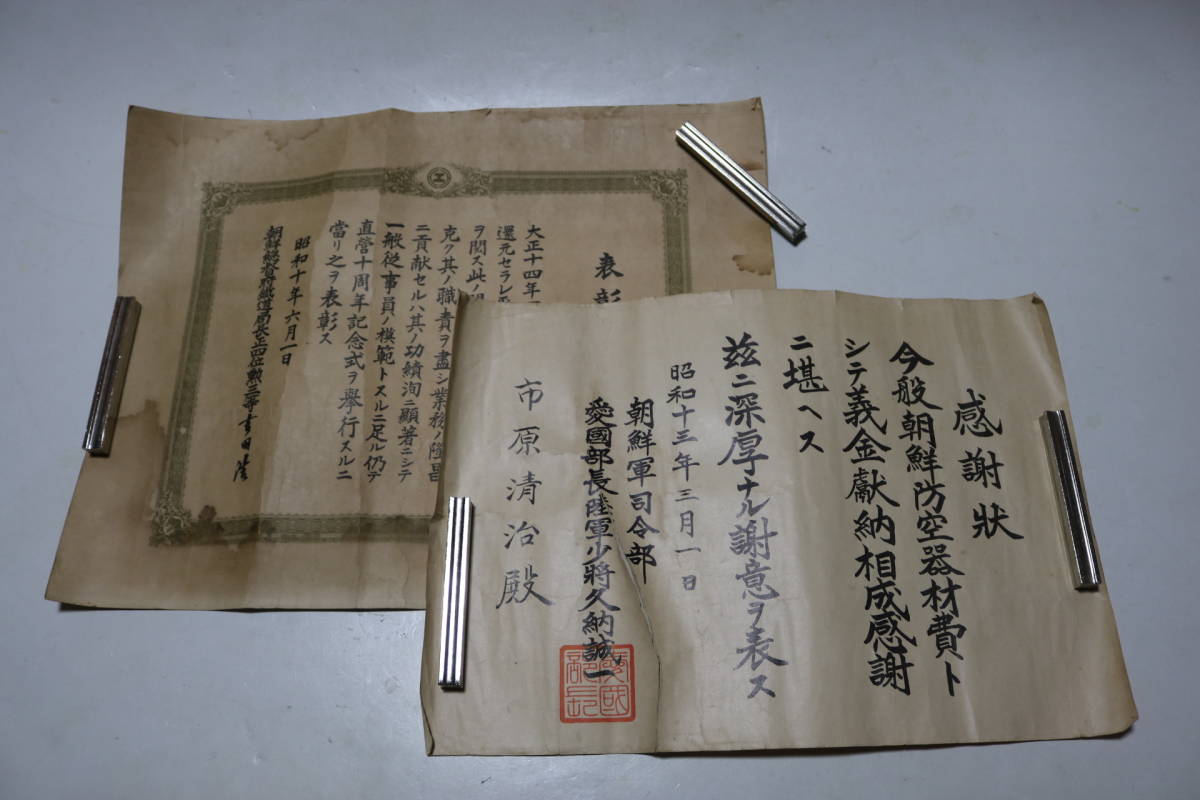 感謝狀
今般朝鮮防空器材費ト
シテ義金獻納相成感謝
ニ堪ヘス
茲ニ深厚ナル謝意ヲ表ス
昭和十三年三月一日
朝鮮軍司令部
愛國部長陸軍少將久納誠一
市原清治殿
愛國部長
表彰
大正十四年
還元セラレ
ヲ閲ス此ノ
克ク其ノ職責ヲ盡シ業務ノ隆昌
ニ貢献セルハ其ノ功績洵ニ顯著ニシテ
一般從事員ノ模範トスルニ足ル仍テ
直營十周年記念式ヲ擧行スルニ
當リ之ヲ表彰ス
昭和十年六月一日
朝鮮總督府鐵道局長正四位勲三等吉田浩